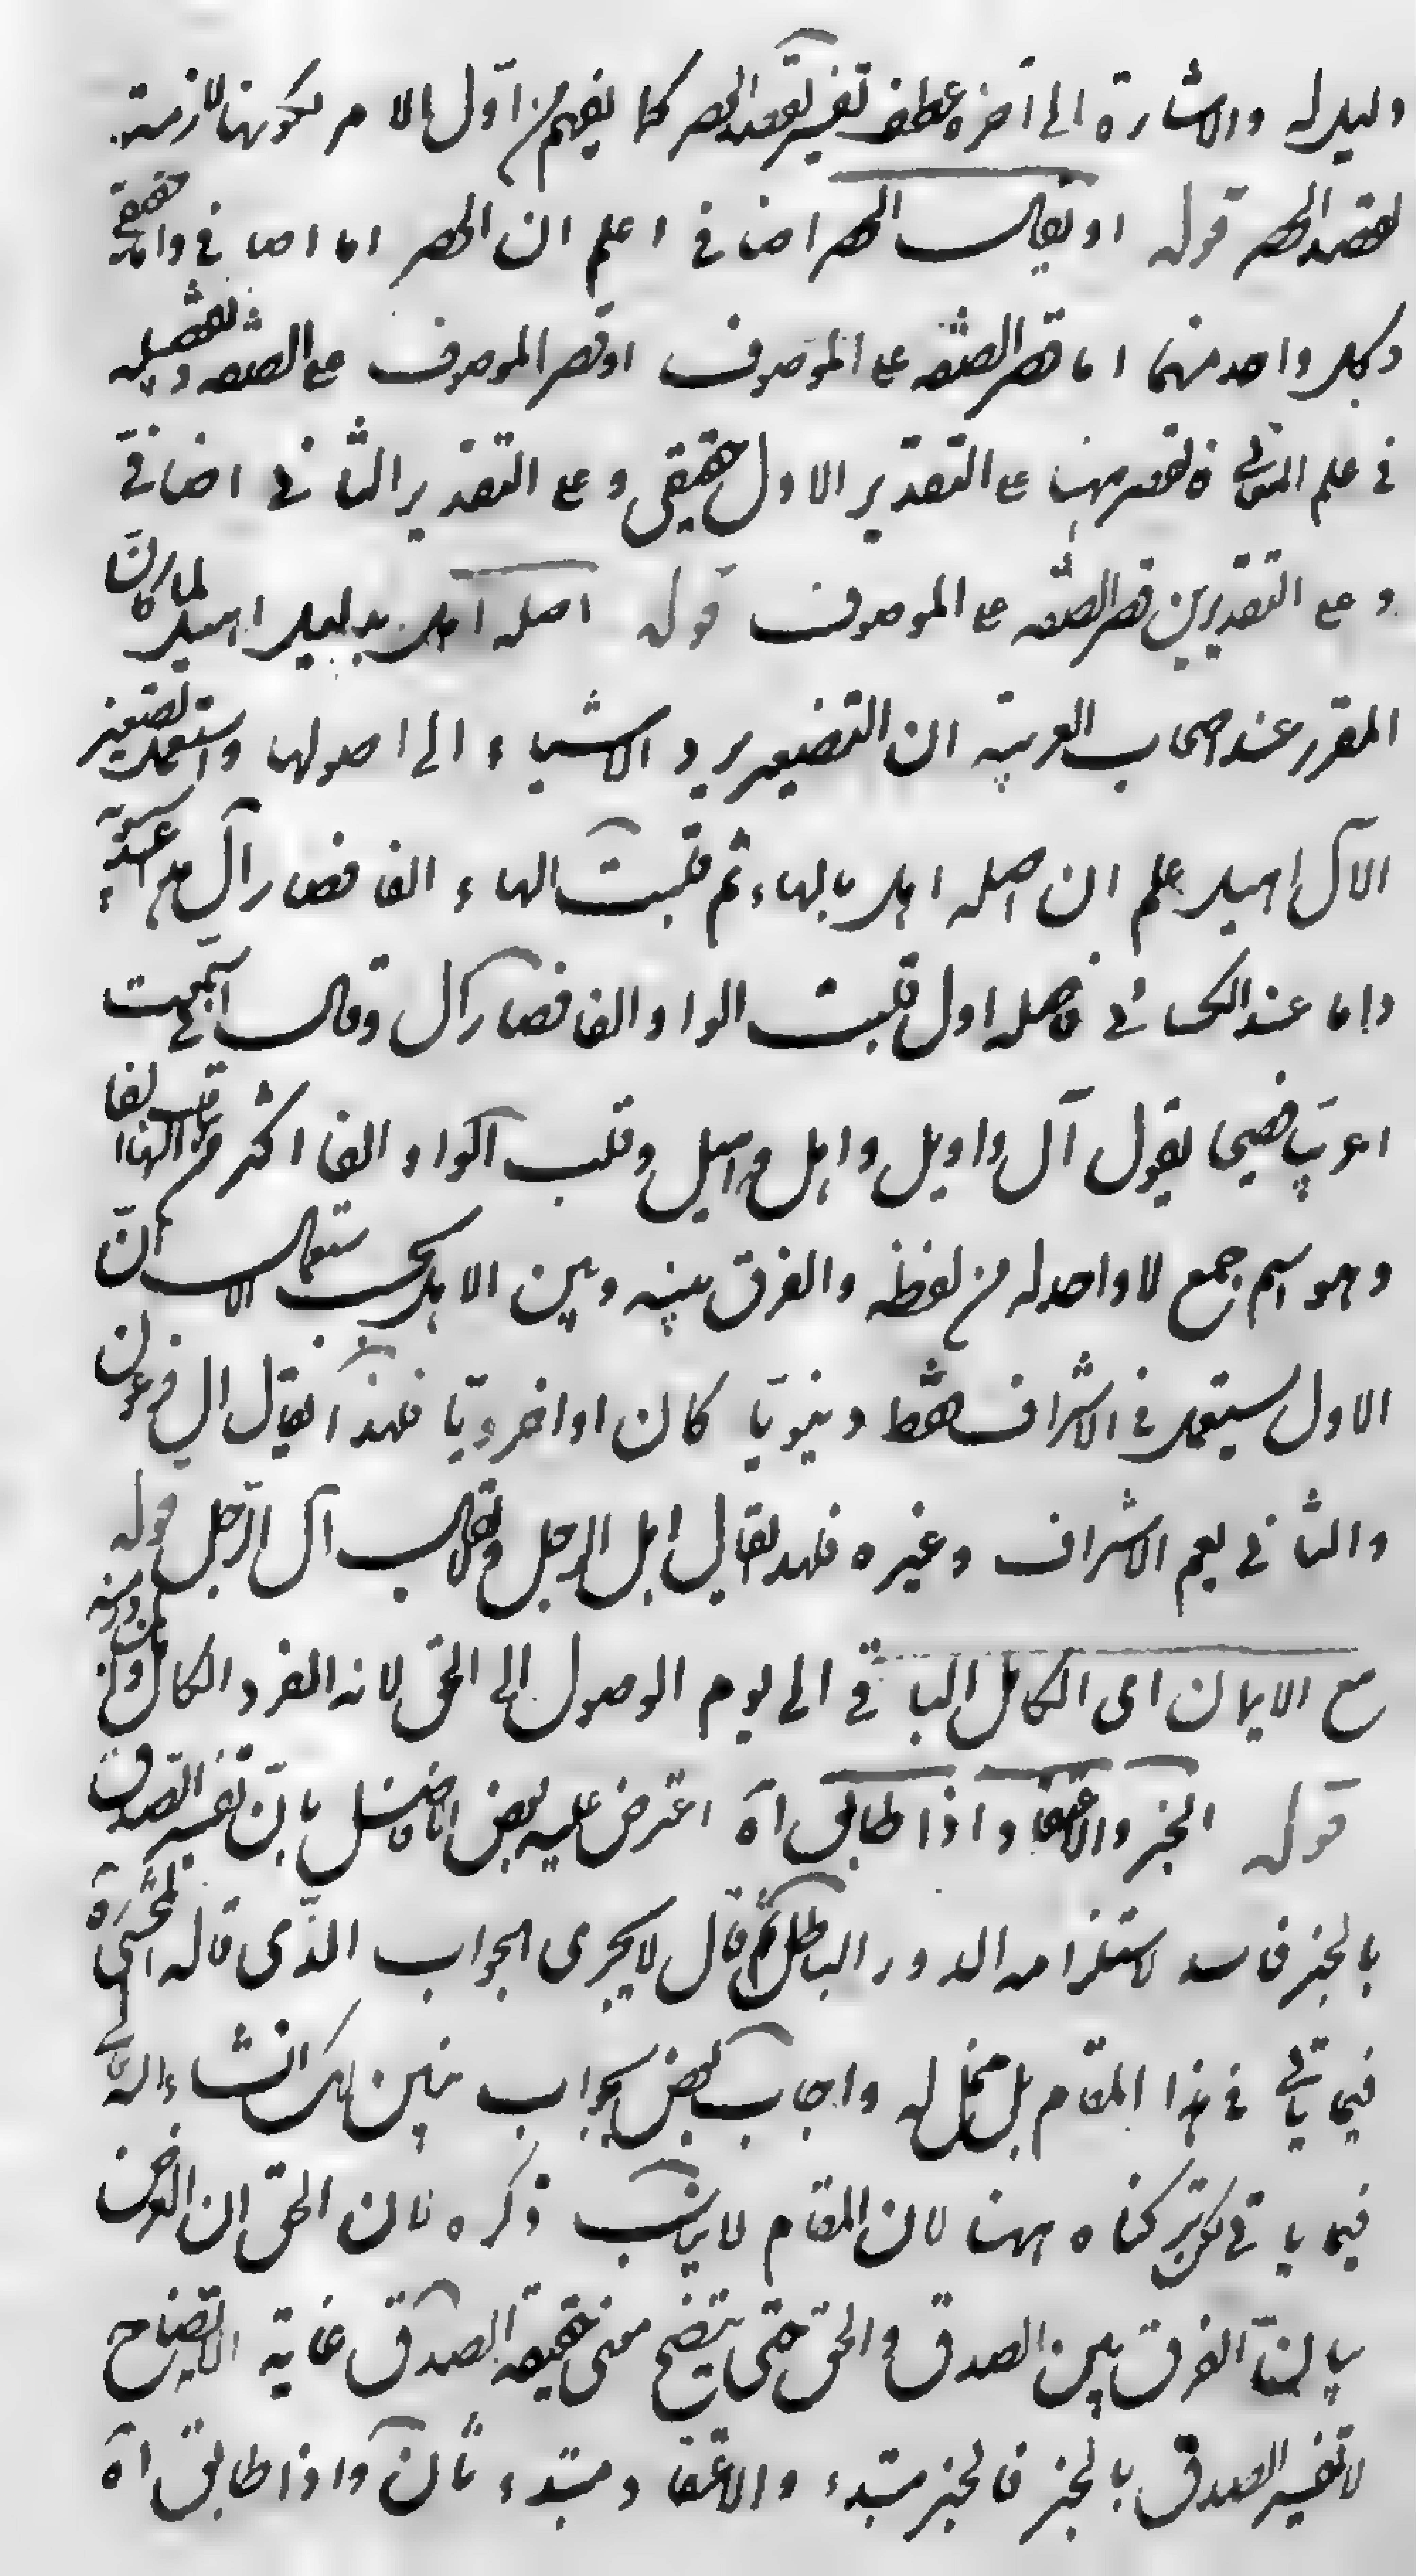 دليل له والاشارة الى آخره عطف تفسير لقصد الحصر كما يفهم من اول الامر لكونها لازمة
لقصد الحصر قوله او يقال الحصر اضافي اعلم ان الحصر اما اضافي واما حقيقي
وكل واحد منهما اما قصر الصفة على الموصوف او قصر الموصوف على الصفة وتفصيله
في علم المعاني فالحصر ههنا على التقدير الاول حقيقي وعلى التقدير الثاني اضافي
وعلى التقديرين قصر الصفة على الموصوف قوله اصله اهل بدليل اهيل لما كان
المقرر عند اصحاب العربية ان التصغير يرد الاشياء الى اصولها واستعمل تصغير
الآل اهيل علم ان اصله اهل بالهاء ثم قلبت الهاء الفا فصار آل هو عند سيبويه
واما عند الكسائي فاصله اول قلبت الواو الفا فصار آل وقال سمعت
اعرابيا فصيحا يقول آل واويل واهل واهيل وقلب الواو الفا اكثر من قلب الهاء الفا
وهو اسم جمع لا واحد له من لفظه والفرق بينه وبين الاهل بحسب الاستعمال ان
الاول يستعمل في الاشراف فقط دنيويا كان او اخرويا فلهذا يقال آل فرعون
والثاني يعم الاشراف وغيره فلهذا يقال اهل الرجل ولا يقال آل الرجل قوله
مع الايمان اى الكامل الباقي الى يوم الوصول الى الحق لانه الفرد الكامل
قوله الخبر والاعتقاد اذا طابق اه اعترض عليه بعض الافاضل بان تفسير الصدق
بالخبر فاسد لاستلزامه الدور الباطل ثم قال لا يجرى الجواب الذى قاله المحشى
فيما يأتي في هذا المقام بل مخل له واجاب بعض بجواب نبين لك انشاء الله
فيما يأتي لكن تركناه ههنا لان المقام لا يناسب ذكره فان الحق ان الغرض
بيان الفرق بين الصدق والحق حتى يتضح معنى حقيقة الصدق غاية الاتضاح
لا تفسير الصدق بالخبر فالخبر مبتدء والاعتقاد مبتدء ثان واذا طابق اه